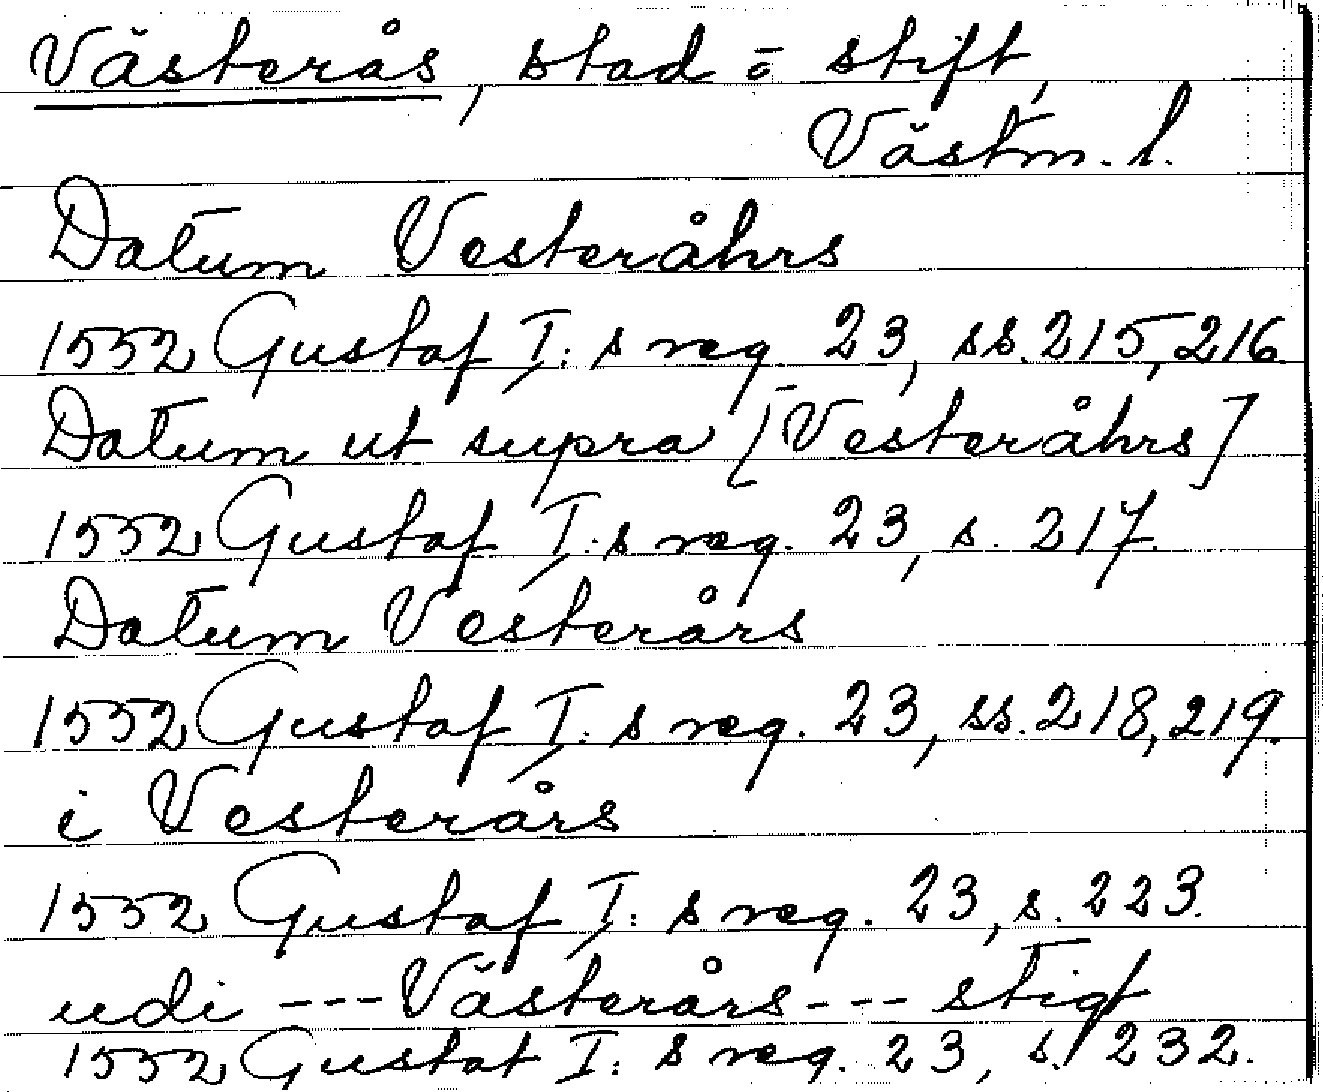 Västerås, stad ō stift,
Västm. l.
Datum Vesteråhrs
1552 Gustaf I: s reg. 23, ss. 215, 216
Datum ut supra [Vesteråhrs]
1552 Gustaf I: s reg. 23, s. 217.
Datum Vesterårs
1552 Gustaf I: s reg. 23, ss. 218, 219.
i Vesterårs
1552 Gustaf I: s reg. 23, s. 223.
udi --- Västerårs --- stigt
1552 Gustaf I: s reg. 23, s. 232.